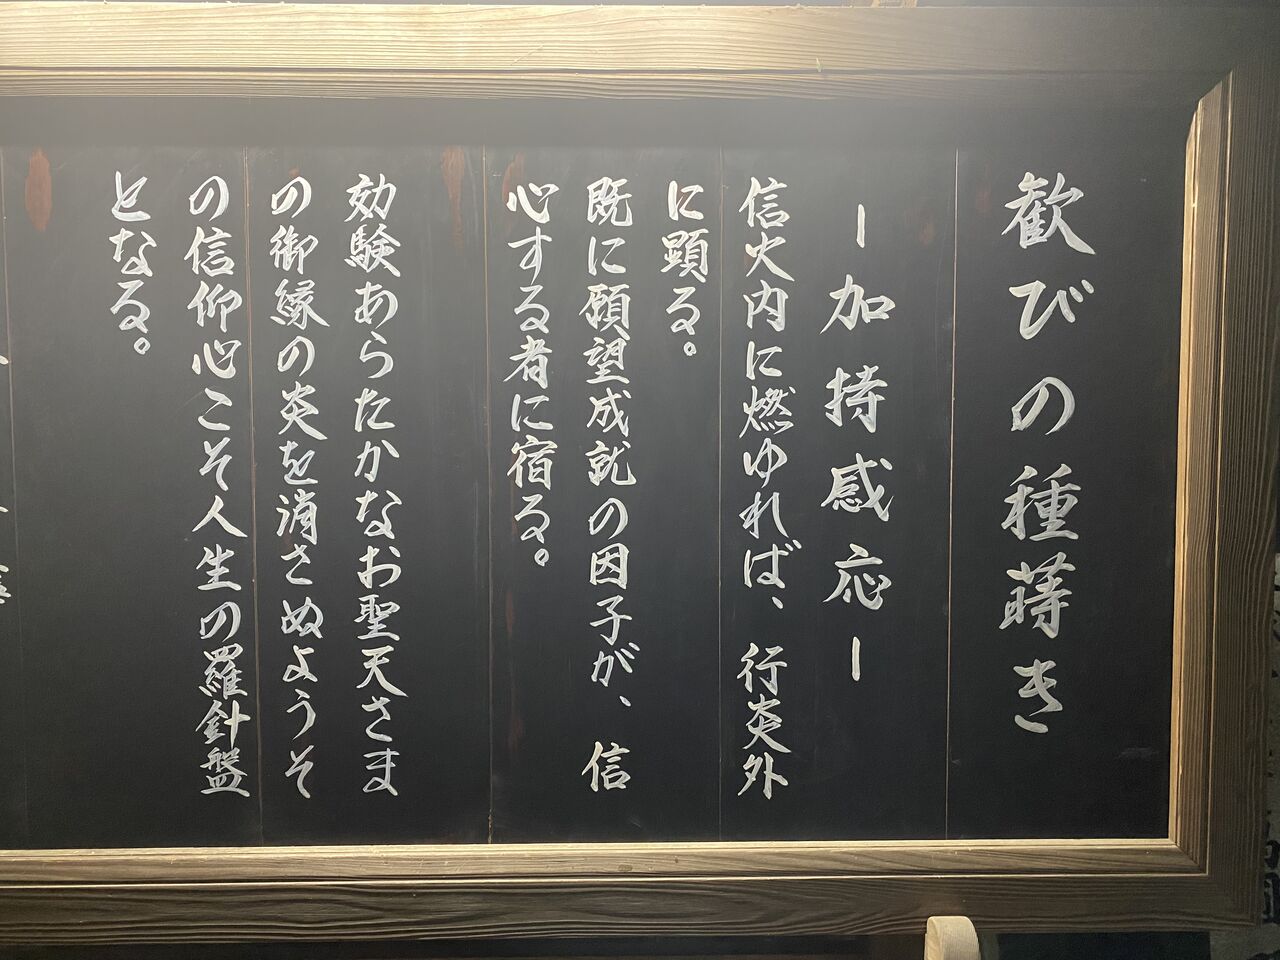 歓びの種蒔き
ー加持感応ー
信火内に燃ゆれば、行炎外
に顕る。
既に願望成就の因子が、信
心する者に宿る。
効験あらたかなお聖天さま
の御縁の炎を消さぬようそ
の信仰心こそ人生の羅針盤
となる。